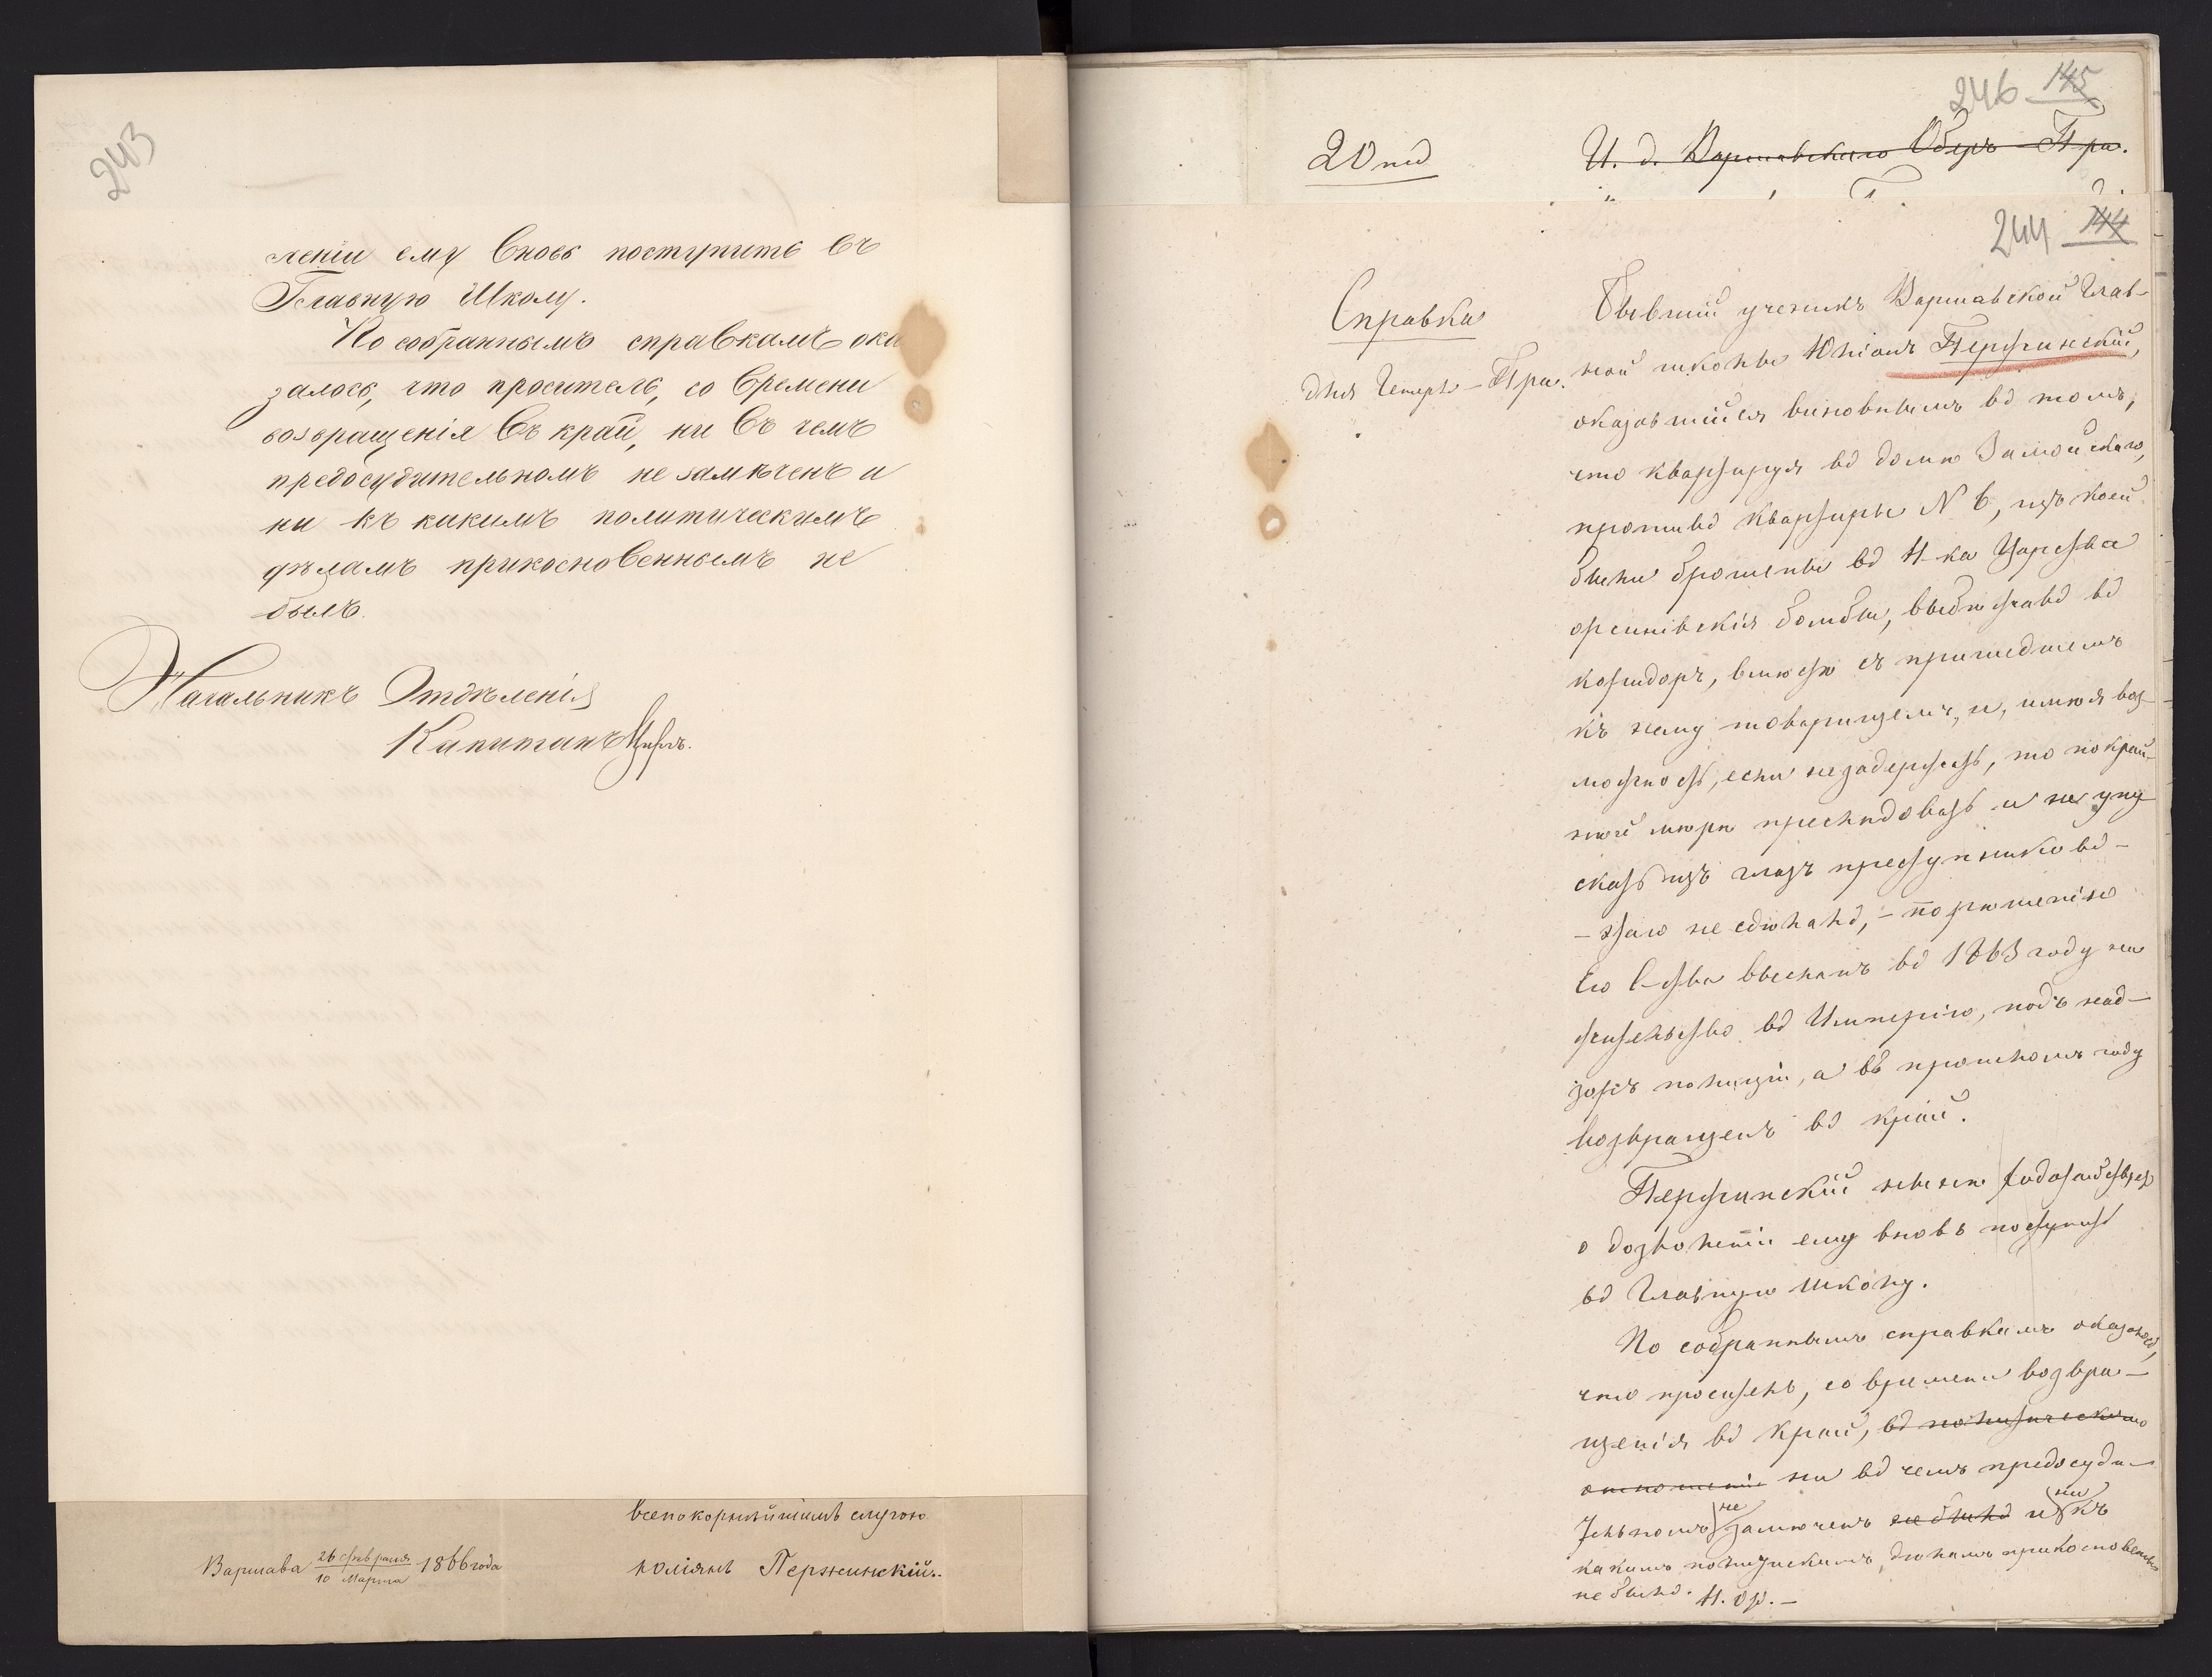 243
леніи ему вновь поступить въ
Главную Школу.
По собраннымъ справкамъ ока
залось, что проситель, со времени
возвращенія въ край, ни въ чемъ
предосудительномъ не замѣченъ и
ни къ какимъ политическимъ
дѣламъ прикосновеннымъ не
былъ.
Начальникъ Отдѣленія
Капитанъ
Всепокорнѣйшимъ слугою
Варшава 26 февраля / 10 Марта 1866 года
Юліянъ Пержинскій.
246 145
20
И. д. Варшавскаго Оберъ-По
244 144
Справка
для Генерл-По
Бывшій ученикъ Варшавской Глав-
ной школы Юліанъ Пержинскій,
оказавшійся виновнымъ въ томъ,
что квартируя въ домѣ Замойскаго,
противъ квартиры N 6, изъ коей
были брошены въ Н-ка Царства
орсиніевскія бомбы, выбѣжавъ въ
коридоръ, вмѣстѣ съ пришедшемъ
къ нему товарищемъ, и, имѣя воз-
можность, если незадержать, то покрай-
ней мѣрѣ преслѣдовать и не упу-
скать изъ глазъ преступниковъ -
- этаго не сдѣлалъ, - по рѣшенію
Его С-ства высланъ въ 1863 году на
жительство въ Имперію, подъ над-
зоръ полиціи, а въ прошломъ году
возвращенъ въ край.
Пержинскій нынѣ ходатайствуетъ
о дозволеніи ему вновь поступить
въ Главную школу.
По собраннымъ справкамъ оказалось,
что проситель, со времени возвра-
щенія въ край, въ политическомъ
отношеніи ни въ чемъ предосуди-
тельномъ не замѣченъ не былъ и ни къ
какимъ политическимъ дѣламъ прикосновеннымъ
не былъ. Н. От. -